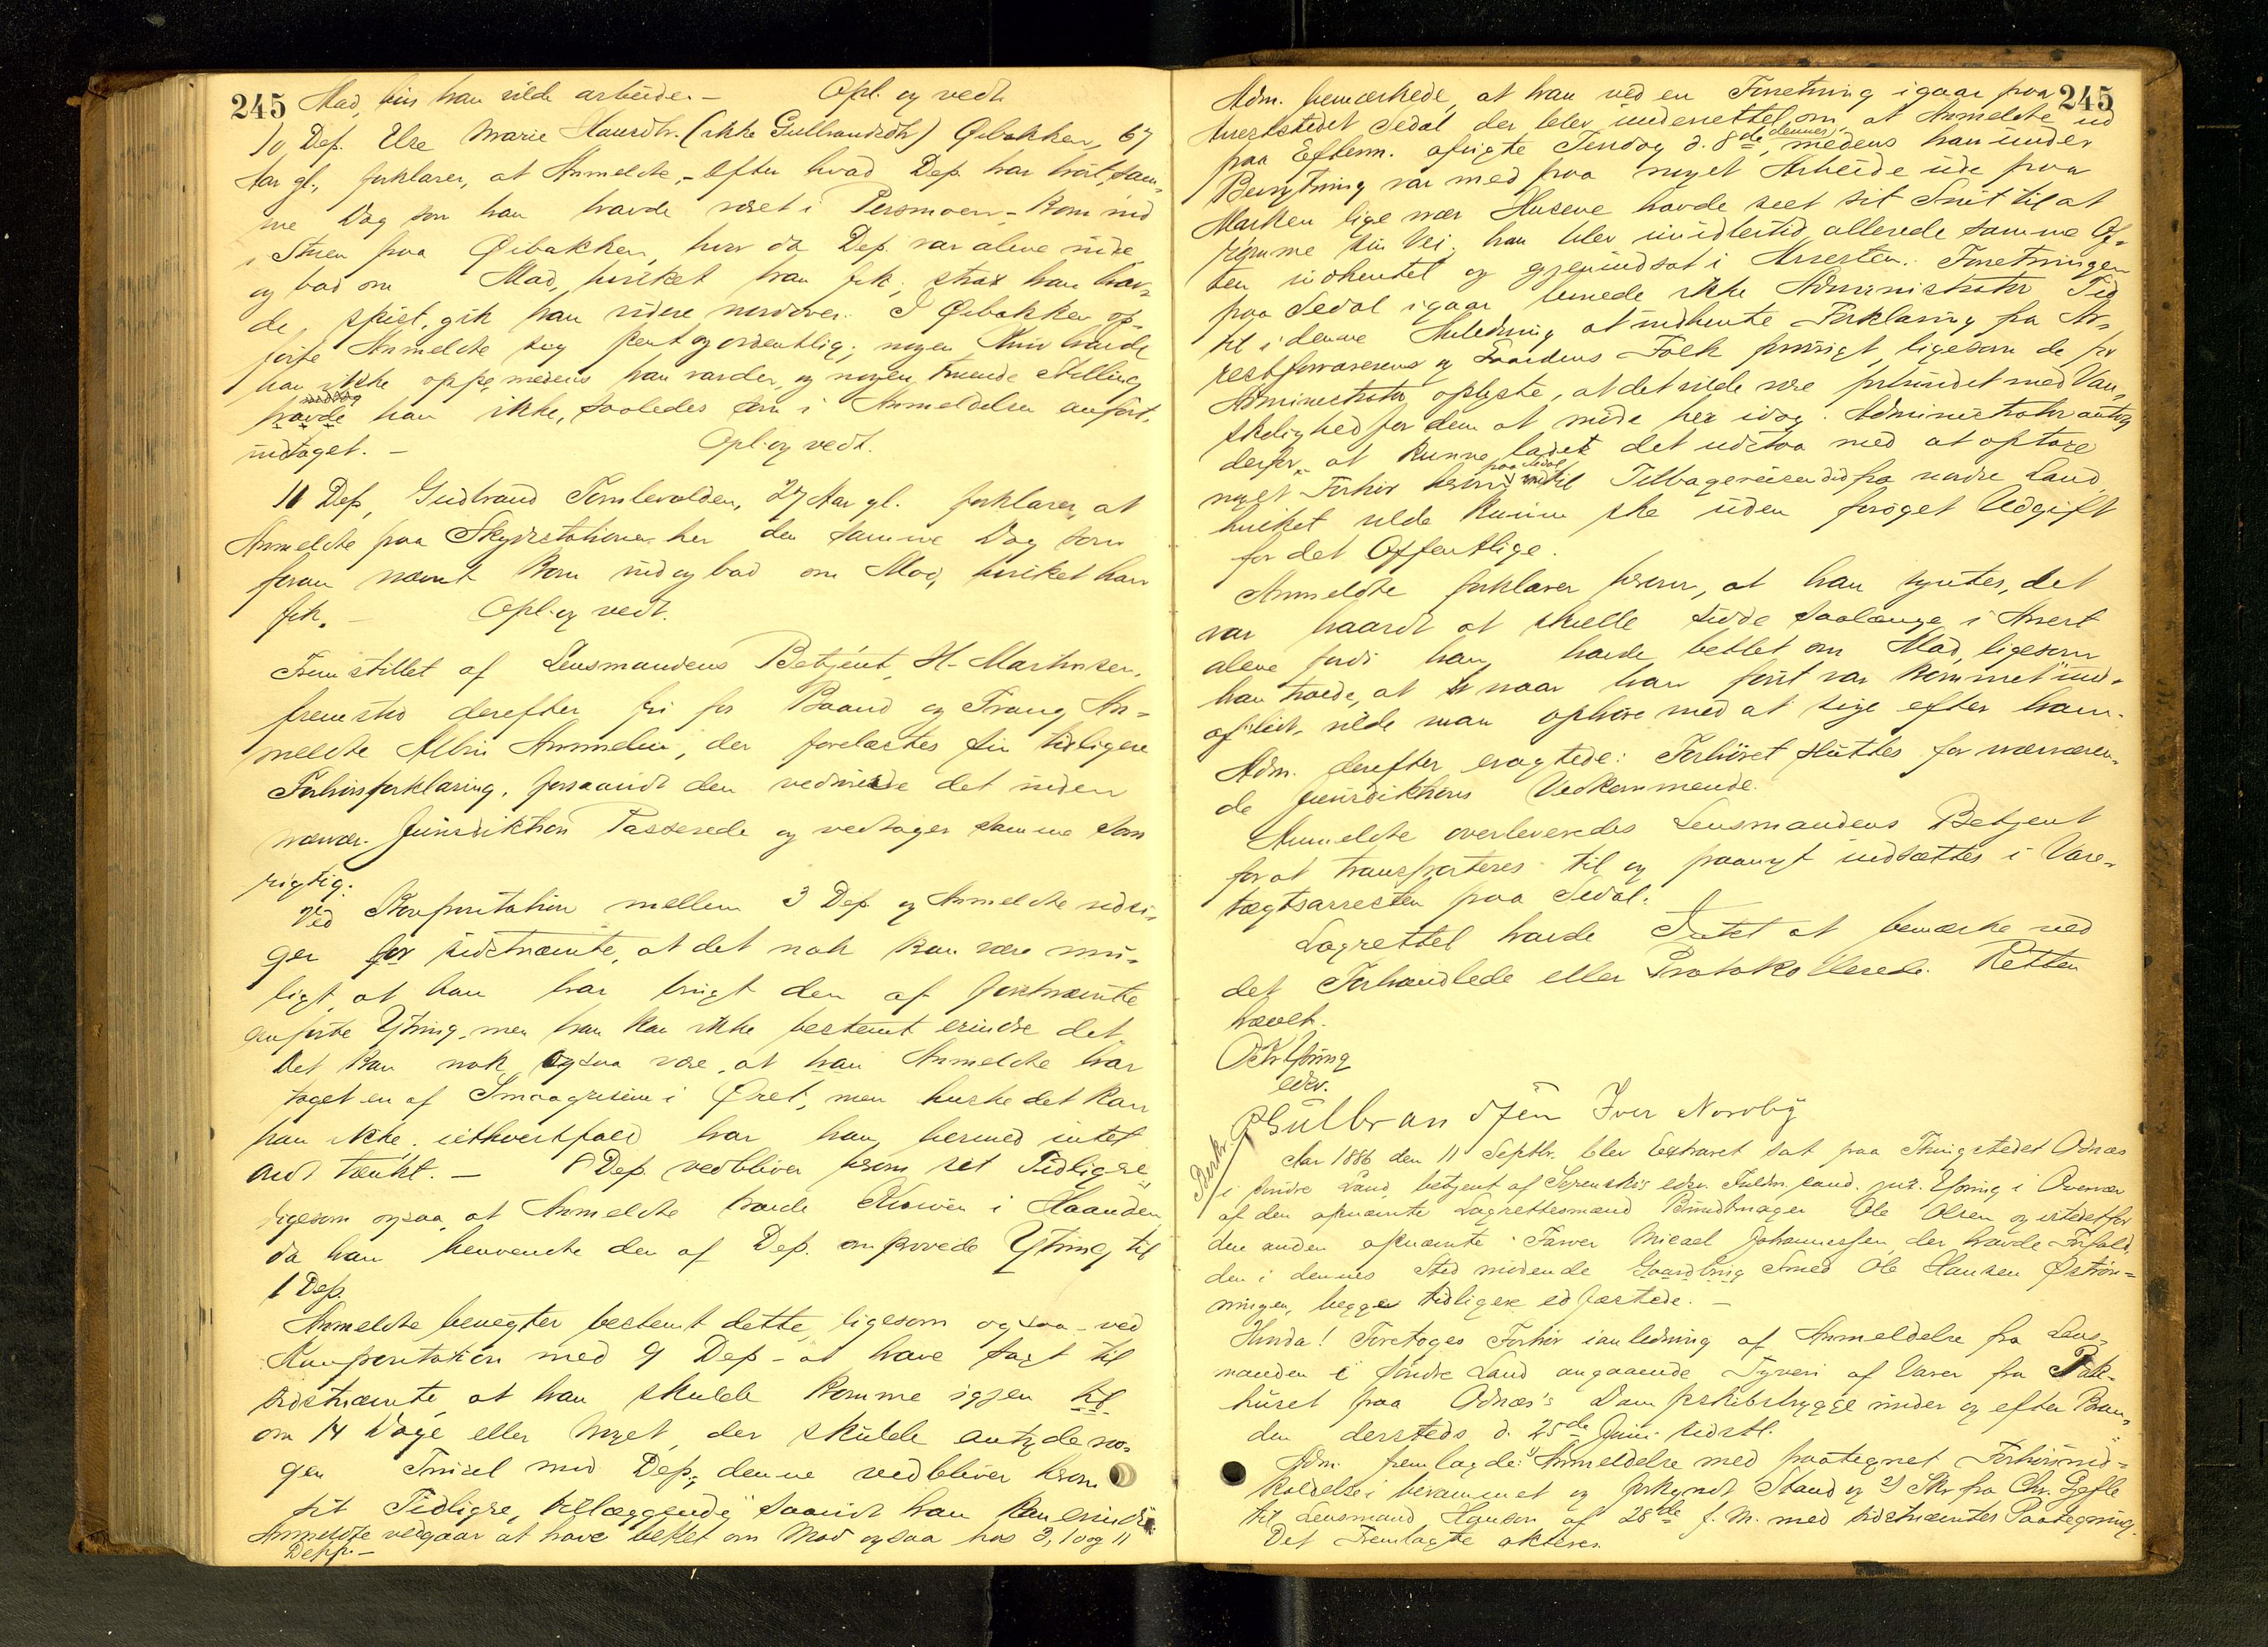 245 Mad, hvis han vilde arbeide. — Opl. og vedt.
10 Dep. Else Marie Hansdtr. (ikke Gulbrandsdtr) Øibakken, 67
Aar gl., forklarer, at Anmeldte, – efter hvad Dep. har hört, sam-
me Dag som han havde været i Persmoen – kom ind
i Stuen paa Øibakken, hvor da Dep. var alene inde
og bad om Mad, hvilket han fik; strax han hav-
de spist, gik han videre nordover. I Øibakken op-
förte Anmeldte sig pent og ordentlig; nogen Kniv havde
han ikke oppe medens han var der, og nogen truende Stilling
havde han ikke, saaledes som i Anmeldelsen anfört,
indtaget. — Opl. og vedt.
11 Dep, Gudbrand Tomlevolden, 27 Aar gl. forklarer, at
Anmeldte paa Skydsstationen her den samme Dag som
foran nævnt kom ind og bad om Mad, hvilket han
fik. — Opl. og vedt.
Fremstillet af Lensmandens Betjent, H. Martinsen,
fremstod derefter fri for Baand og Tvang An-
meldte Albin Ammelin, der forelæstes sin tidligere
Forhörsforklaring, forsaavidt den vedrörte det inden
nærvær. Jurisdiktion Passerede og vedtager samme som
rigtig.
Ved Konfrontation mellem 3 Dep og Anmeldte udsi-
ger for sidstnævnte, at det nok kan være mu-
ligt, at han har brugt den af förstnævnte
anförte Ytring, men han kan ikke bestemt erindre det.
Det kan nok ogsaa være, at han Anmeldte har
taget en af Smaagrisene i Öret, men huske det kan
han ikke; iethvertfald har han hermed intet
ondt tænkt. — 8 Dep. vedbliver herom sit Tidligere,
ligesom ogsaa, at Anmeldte havde Kniven i Haanden,
da han henvendte den af Dep. omprovede Ytring til
1 Dep.
Anmeldte benegter bestemt dette, ligesom ogsaa – ved
Konfrontation med 9 Dep – at have sagt til
sidstnævnte, at han skulde komme igjen til
om 14 Dage eller Noget, der skulde antyde no-
gen Trusel mod Dep.; denne vedbliver herom
sit Tidligre, tillæggende saavidt han kan erindre.
Anmeldte vedgaar at have bettlet om Mad ogsaa hos 3, 10 og 11
Depp. —
Adm. bemærkede, at han ved en Forretning igaar paa 245
Arreststedet Sedal der blev underrettet om, at Anmeldte ud
paa Efterm. afvigte Tirsdag d. 8de dennes, medens han under
Bevogtning var med paa noget Arbeide ude paa
Marken lige nær Husene havde seet sit Snit til at
römme sin Vei; han blev imidlertid allerede samme Af-
ten indhentet og gjenindsat i Arresten. Forretningen
paa Sedal igaar levnede ikke Administrator Tid
til i denne Anledning at indhente Forklaring fra Ar-
restforvareren og Gaardens Folk forövrigt, ligesom de for
Administrator oplyste, at det vilde være forbundet med Van-
skelighed for dem at möde her idag. Administrator antog
derfor, at kunne ladet det udstaa med at optage
noget Forhör herom paa Sedal indtil Tilbagereisen did fra nordre Land,
hvilket vilde kunne ske uden foröget Udgift
for det Offentlige.
Anmeldte forklarer herom, at han syntes, det
var haardt at skulle sidde saalænge i Arrest
alene fordi han havde bettlet om Mad, ligesom
han troede, at naar han först var kommet und-
af lidt, vilde man ophöre med at söge efter ham.
Adm. derefter eragtede: Forhöret sluttes for nærværen-
de Jurisdiktions Vedkommende.
Anmeldte overleveredes Lensmandens Betjent
for at transporteres til og paanyt indsættes i Vare-
tægtsarresten paa Sedal.
Lagrettet havde Intet at bemærke ved
det Forhandlede eller Protokollerede. Retten
hævet.
edsv.
Gulbrandsen Iver Nordby
Aar 1886 den 11 Septbr. blev Extraret sat paa Thingstedet Odnæs
i söndre Land, betjent af Sorenskr's edsv. Fuldm. cand. jur. Ytring i Overvær
af den opnævnte Lagrettesmand Bundtmager Ole Olsen og istedetfor
den anden opnævnte Farver Micael Johannessen, der havde Forfald,
den i dennes Sted mödende Gaardbrug Smed Ole Hansen Öströn-
ningen, begge tidligere edfæstede. —
Hvorda! Foretoges Forhör i anledning af Anmeldelse fra Lens-
manden i söndre Land angaaende Tyveri af Varer fra Pak-
huset paa Odnæs's Dampskibsbrygge under og efter Bran-
den dersteds d. 25de Juni sidstl.
Adm. fremlagde: 1) Anmeldelse med paategnet Forhörsind-
kaldelse i berammet og forkyndt Stand og 2) Skr. fra Chr. Gefle
til Lensmand Hanson af 28de f. M. med sidstnævntes Paategning.
Det Fremlagte akteres